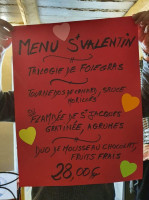 MENU S<sup>t</sup>VALENTIN
TRILOGIE DE FOIE GRAS
TOURNEDOS DE CANARD, SAUCE
MORILLES
FLAMBÉE DE S<sup>t</sup> JACQUES
GRATINÉE, AGRUMES
DUO DE MOUSSE AU CHOCOLAT,
FRUITS FRAIS
28,00€